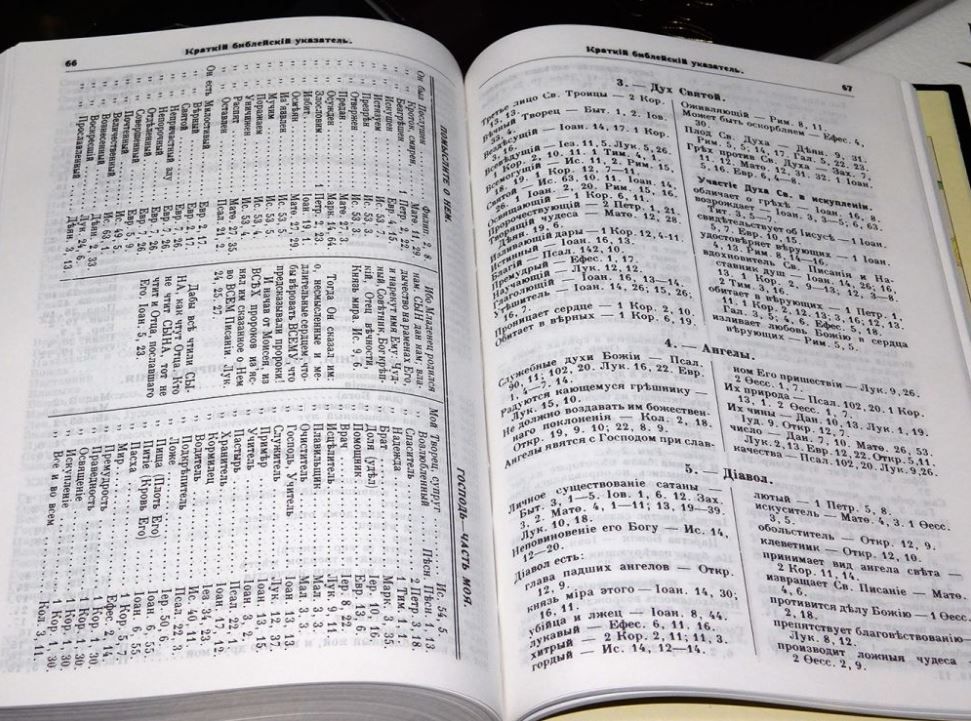 66
Краткій библейскій указатель.
ПОМЫСЛИТЕ О НЕМ.
Он был Послушен . . . . . Филип. 2, 8.
„ „ Кроток, смирен, . . Матѳ. 11, 29.
„ „ Безгрѣшен . . . . . 1 Петр. 2, 22.
„ „ Искушен . . . . . . Евр. 4, 15.
„ „ Истязуем . . . . . Ис. 53, 7.
„ „ Презрѣн . . . . . . Ис. 53, 3.
„ „ Отвержен . . . . . Ис. 53, 3.
„ „ Предан . . . . . . Матѳ. 27, 3.
„ „ Осужден . . . . . Марк. 14, 64
„ „ Злословим . . . . 1 Петр. 2, 23.
„ „ Избит . . . . . . Іоан. 19, 1.
„ „ Осмѣян . . . . . . Матѳ. 27, 29
„ „ Из'язвлен . . . . . Ис. 53, 5.
„ „ Мучим . . . . . . Ис. 53, 5.
„ „ Поражаем . . . . . Ис. 53, 4.
„ „ Уничижен . . . . . Ис. 53, 4.
„ „ Распят . . . . . . Матѳ. 27, 35.
„ „ Оставлен . . . . . Псал. 21, 2.
Он есть Милостивый . . . . Евр. 2, 17.
„ „ Вѣрный . . . . . . Евр. 2, 17.
„ „ Святой . . . . . . Евр. 7, 26
„ „ Непричастный злу Евр. 7, 26
„ „ Непорочный . . . . Евр. 7, 26
„ „ Отдѣленный . . . . Евр. 7, 26
„ „ Совершенный . . . Евр. 5, 9.
„ „ Почтенный . . . . Ис. 49, 5.
„ „ Величественный . . Ис. 63, 1.
„ „ Вознесенный . . . . Дѣян. 2, 33
„ „ Воскресшій . . . . Лук. 24, 6.
„ „ Прославленный . . Дѣян. 3, 13.
Ибо Младенец родился
нам, СЫН дан нам; вла-
дычество на раменах Его,
и нарекут имя Ему: Чуд-
ный, Совѣтник, Бог крѣп-
кій, Отец вѣчности,
Князь мира. Ис. 9, 6.
Тогда Он сказал им:
о, несмысленные и ме-
длительные сердцем, что-
бы вѣровать ВСЕМУ, что
предсказывали пророки!
И начав от Моисея, из
ВСѢХ пророков из'яс-
нял им сказанное о Нем
во ВСЕМ Писаніи. Лук.
24, 25. 27.
Дабы всѣ чтили СЫ-
НА, как чтут Отца. Кто
не чтит СЫНА, тот не
чтит и Отца, пославшаго
Его. Іоан. 5, 23.
ГОСПОДЬ ЧАСТЬ МОЯ.
Мой Творец, супруг . . . . . Ис. 54, 5.
„ Возлюбленный . . Пѣсн. Пѣсн. 1, 13.
„ Спаситель . . . . . 2 Петр. 3, 18.
„ Надежда . . . . . . 1 Тим. 1, 1.
„ Брат . . . . . . . Марк. 3, 35.
„ Доля (удѣл) . . . . Іер. 10, 16.
„ Помощник . . . . . Евр. 13, 6.
„ Врач . . . . . . . Іер. 8, 22
„ Исцѣлитель . . . . Лук. 9, 11
„ Плавильщик . . . . Мал. 3, 3.
„ Очиститель . . . . Мал. 3, 3.
„ Господь, Учитель . . Іоан. 13, 13.
„ Служитель . . . . . Лук. 12, 37.
„ Примѣр . . . . . . Іоан. 13, 15
„ Учитель . . . . . . Іоан. 3, 2.
„ Пастырь . . . . . . Псал. 22, 1.
„ Хранитель . . . . . Іоан. 17, 12
„ Кормилец . . . . . Іез. 34, 23
„ Водитель . . . . . Ис. 40, 11
„ Подкрѣпитель . . . Псал. 22, 3.
„ Покой . . . . . . Іер. 50, 6.
„ Пища (Плоть Его) . . Іоан. 6, 55
„ Питіе (Кровь Его) Іоан. 6, 55.
„ Пасха . . . . . . 1 Кор. 5, 7.
„ Мир . . . . . . . Ефес. 2, 14
„ Премудрость . . . . 1 Кор. 1, 30.
„ Праведность . . . . 1 Кор. 1, 30.
„ Освященіе . . . . . 1 Кор. 1, 30.
„ Искупленіе . . . . 1 Кор. 1, 30.
„ Все и во всем . . . . Кол. 3, 11.
Краткій библейскій указатель.
67
3. — Дух Святой.
Третье лицо Св. Троицы — 2 Кор.
13, 13.
Вѣчный Творец — Быт. 1, 2. Іов.
33, 4.
Вездѣсущій — Іоан. 14, 17. 1 Кор.
3, 16.
Всевѣдущій — Іез. 11, 5. Лук. 2, 26.
1 Кор. 2, 10. 11. 1 Тим. 4, 1.
Всемогущій — Ис. 11, 2. Рим. 15,
18, 19. 1 Кор. 12, 7—11.
Святой — Ис. 63, 10, 11. Іоан. 14,
26. 1 Іоан. 2, 20. Рим. 15, 16.
Освящающій — 1 Кор. 6, 11.
Пророчествующій — 2 Петр. 1, 21.
Творящій чудеса — Матѳ. 12, 28.
Дѣян. 19, 6.
Изливающій дары — 1 Кор. 12, 4-11.
Истинный — Іоан. 16, 13.
Благій — Псал. 142, 10.
Премудрый — Ефес. 1, 17.
Научающій — Лук. 12, 12.
Наголющій — Іоан. 16, 13—14.
Утѣшитель — Іоан. 14, 26; 15, 26.
16, 7.
Проницает сердце — 1 Кор. 2, 10.
Обитает в вѣрных — 1 Кор. 6, 19.
Оживляющій — Рим. 8, 11.
Может быть оскорбляем — Ефес. 4,
30.
Плод Св. Духа — Дѣян. 9, 31.
Рим. 5, 5. 14, 17. Гал. 5, 22, 23.
Грѣх против Св. Духа — Зах. 7,
11, 12. Матѳ. 12, 31, 32. 1 Іоан.
5, 16. Евр. 6, 4—8.
Участіе Духа Св. в искупленіи.
обличает о грѣхѣ — Іоан. 16, 8.
возрождает — Іоан. 3, 5, 6, 63.
Тит. 3, 5—7.
свидѣтельствует об Іисусѣ — 1 Іоан.
5, 7. Евр. 10, 15.
удостовѣряет вѣрующих — 1 Іоан.
4, 13. Рим. 8, 14—16.
вдохновитель Св. Писанія и На-
ставник душ — Іоан. 14, 26, 16,
13. 1 Кор. 2, 9—13; 12, 3—8.
2 Тим. 3, 16.
обитает в вѣрующих — 1 Петр. 1,
11. 1 Кор. 2, 12. 13; 3, 16; 12, 13.
Гал. 3, 5; 4, 6. Ефес. 5, 18.
изливает любовь Божію в сердца
вѣрующих — Рим. 5, 5.
4. — Ангелы.
Служебные духи Божіи — Псал.
90, 11; 102, 20. Лук. 16, 22. Евр.
1, 4—7. 14.
Радуются кающемуся грѣшнику —
Лук. 15, 10.
Не должно воздавать им божествен-
наго поклоненія — Кол. 2, 18.
Откр. 19, 9. 10; 22, 8. 9.
Ангелы явятся с Господом при слав-
ном Его пришествіи — Лук. 9, 26.
2 Ѳесс. 1, 7.
Их природа — Псал. 102, 20. 1 Кор.
13, 1. 2 Ѳесс. 1, 7.
Их чины — Дан. 10, 13. Лук. 1, 19.
Іуд. 9. Откр. 12, 7.
число — Дан. 7, 10. Матѳ. 26, 53.
Лук. 2, 13. Евр. 12, 22. Откр. 5, 11.
качества — Псал. 102, 20. Лук. 9, 26.
5. — Діавол.
Личное существованіе сатаны —
Быт. 3, 1—5. Іов. 1, 6. 12. Зах.
3, 2. Матѳ. 4, 1—11; 13, 19—39.
Лук. 10, 18.
Неповиновеніе его Богу — Ис. 14,
12—20.
Діавол есть:
глава падших ангелов — Откр.
12, 9.
князь міра этого — Іоан. 14, 30;
16, 11.
убійца и лжец — Іоан. 8, 44.
лукавый — Ефес. 6, 11. 16.
хитрый — 2 Кор. 2, 11; 11, 3.
гордый — Ис. 14, 12—14.
лютый — 1 Петр. 5, 8.
искуситель — Матѳ. 4, 3. 1 Ѳесс.
3, 5.
обольститель — Откр. 12, 9.
клеветник — Откр. 12, 10.
принимает вид ангела свѣта —
2 Кор. 11, 14.
извращает Св. Писаніе — Матѳ.
4, 6.
противится дѣлу Божію — 1 Ѳесс.
2, 18.
препятствует благовѣствованію —
Лук. 8, 12.
производит ложныя чудеса —
2 Ѳесс. 2, 9.